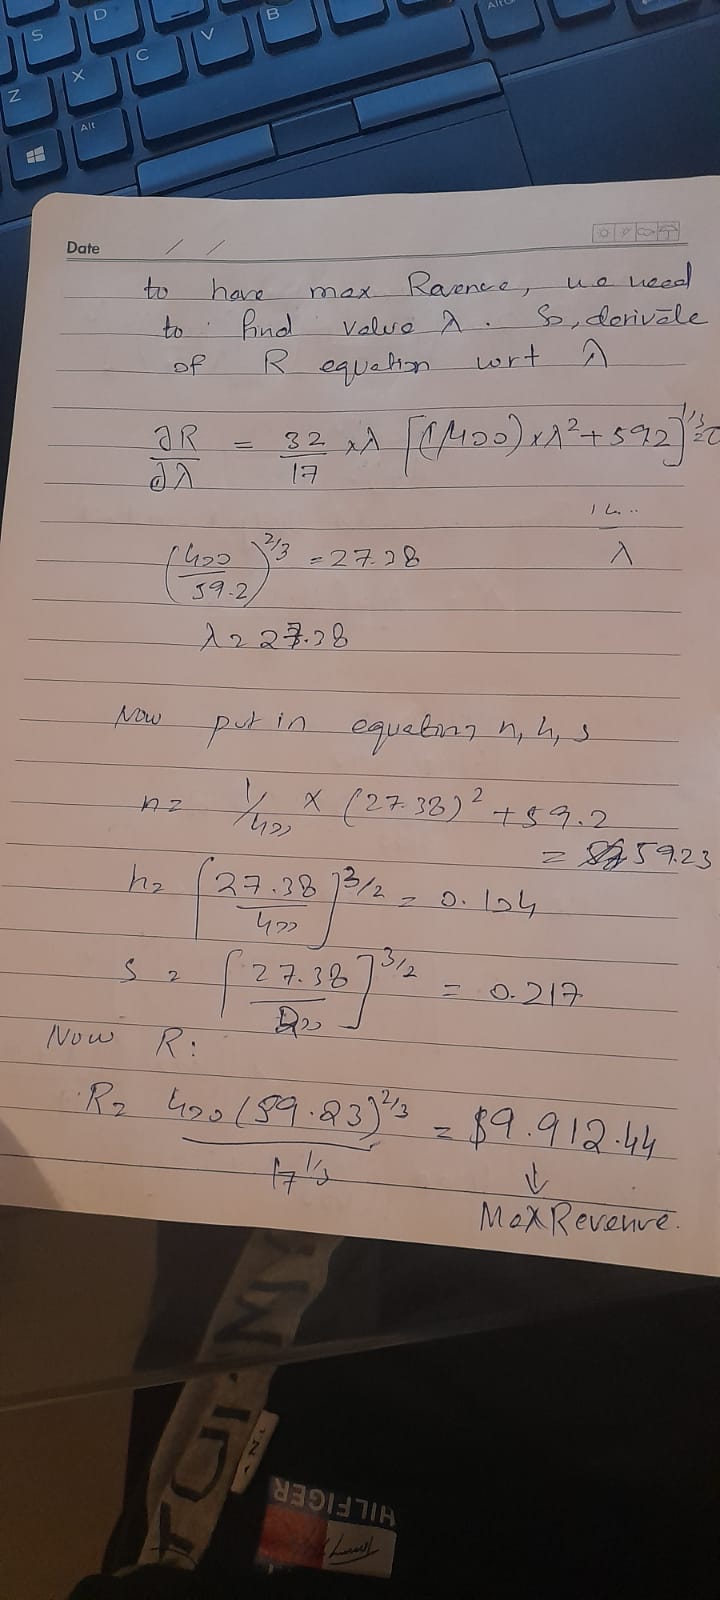 S D B Alt
Z X C V
Alt
Date / /
to have max Ravence, we need
to find value λ. So, derivate
of R equation wrt λ
∂R/∂λ = 32/17 xλ [(1/400)xλ²+592]^1/3 =
λ
(400/59.2)^2/3 = 27.38
λ = 27.38
Now put in equating n, h, s
n = 1/400 x (27.38)² + 59.2
= 59.23
h = [27.38/400]^3/2 = 0.104
S = [27.38/]^3/2 = 0.217
Now R:
R = 400(59.23)^2/3 / 17^1/3 = $9.912.44
↓
Max Revenue.
HILFIGER